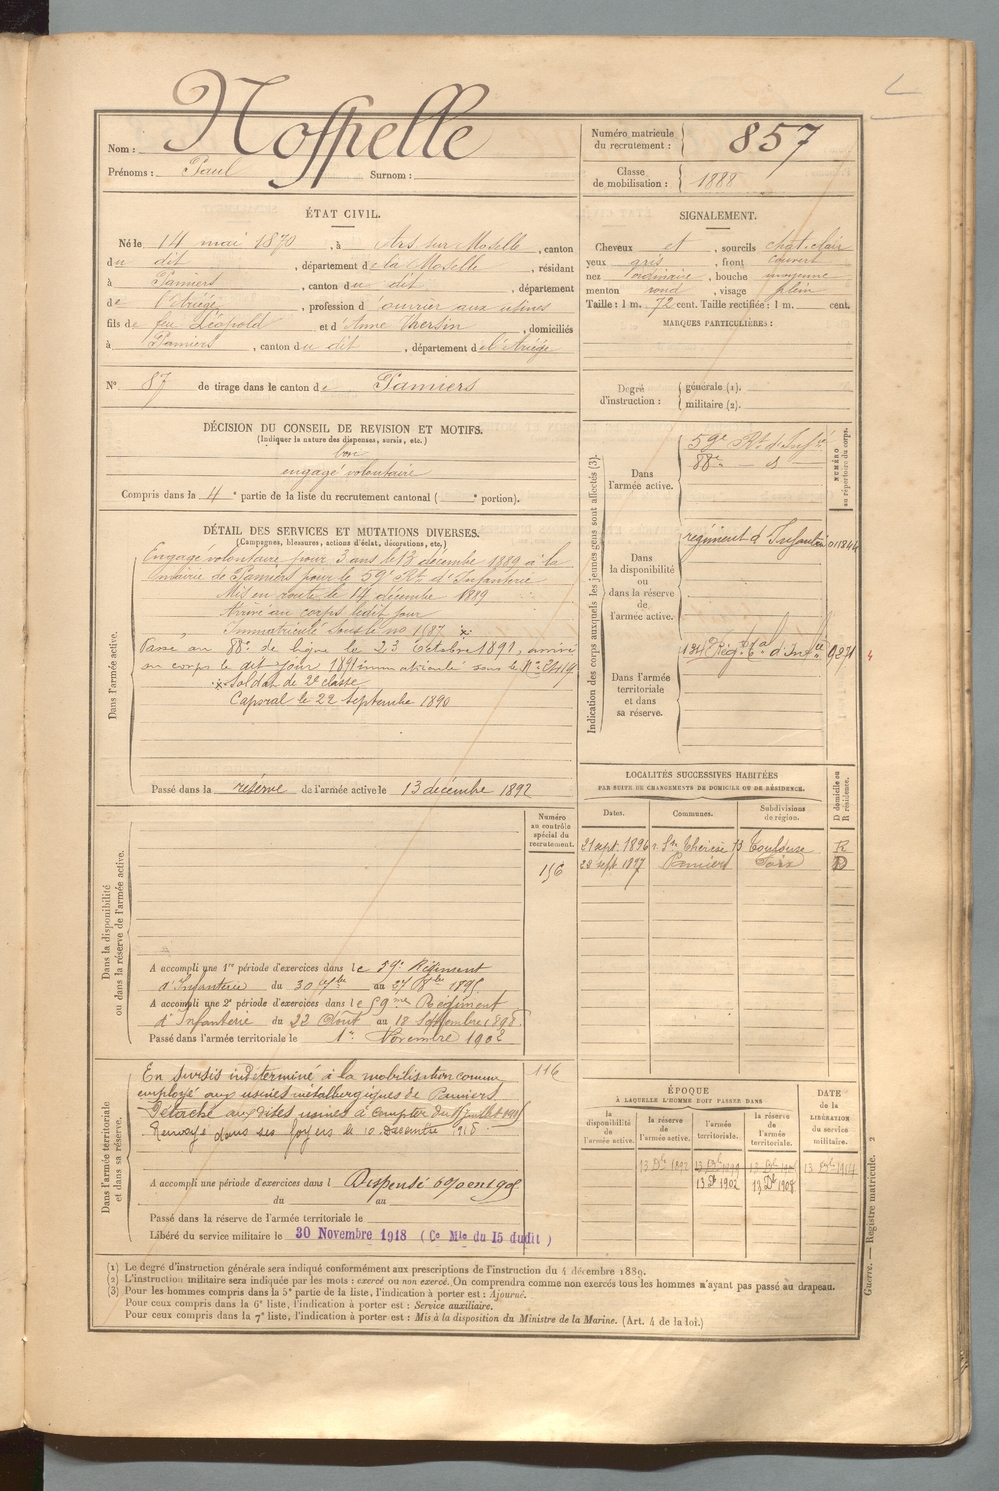 Nom : Nosspelle
Prénoms : Paul Surnom :
Numéro matricule du recrutement : 857
Classe de mobilisation : 1888
ÉTAT CIVIL.
Né le 14 mai 1870, à Ars sur Moselle, canton
du dit, département de la Moselle, résidant
à Pamiers, canton du dit, département
de l'Ariége, profession d'ouvrier aux usines
fils de feu Léopold et d'Anne Thersin, domiciliés
à Pamiers, canton du dit, département de l'Ariége
N° 87 de tirage dans le canton de Pamiers
SIGNALEMENT.
Cheveux et, sourcils chat. clair
yeux gris, front couvert
nez ordinaire, bouche moyenne
menton rond, visage plein
Taille : 1 m. 72 cent. Taille rectifiée : 1 m. cent.
MARQUES PARTICULIÈRES :
Degré d'instruction : générale (1).
militaire (2).
DÉCISION DU CONSEIL DE REVISION ET MOTIFS.
(Indiquer la nature des dispenses, sursis, etc.)
bon
engagé volontaire
Compris dans la 4e partie de la liste du recrutement cantonal ( e portion).
DÉTAIL DES SERVICES ET MUTATIONS DIVERSES.
(Campagnes, blessures, actions d'éclat, décorations, etc.)
Dans l'armée active.
Engagé volontaire pour 3 ans le 13 décembre 1889 à la
mairie de Pamiers pour le 59e Rt d'Infanterie
Mis en route le 14 décembre 1889
Arrivé au corps ledit jour
Immatriculé sous le no 1687
Passé au 88e de ligne le 23 Octobre 1891, arrivé
au corps le dit jour 1891 immatriculé sous le N°
Soldat de 2e classe
Caporal le 22 septembre 1890
Passé dans la réserve de l'armée active le 13 décembre 1892
Indication des corps auxquels les jeunes gens sont affectés (3).
NUMÉRO au répertoire du corps.
Dans l'armée active.
59e Rt d'Infie
88e — d —
Dans la disponibilité ou dans la réserve de l'armée active.
régiment d'Infanterie 011844
Dans l'armée territoriale et dans sa réserve.
134e Régt tal d'Infie
LOCALITÉS SUCCESSIVES HABITÉES
PAR SUITE DE CHANGEMENTS DE DOMICILE OU DE RÉSIDENCE.
D domicile ou R résidence.
Dates. Communes. Subdivisions de région.
21 sept. 1896 r. Ste Thérèse 13 Toulouse R
28 sept. 1897 Pamiers Foix D
Dans la disponibilité ou dans la réserve de l'armée active.
Numéro au contrôle spécial du recrutement.
156
A accompli une 1re période d'exercices dans le 59e Régiment
d'Infanterie du 30 7bre au 27 8bre 1895
A accompli une 2e période d'exercices dans le 59me Régiment
d'Infanterie du 22 Août au 18 Septembre 1898
Passé dans l'armée territoriale le 1er Novembre 1902
Dans l'armée territoriale et dans sa réserve.
116
En sursis indéterminé à la mobilisation comme
employé aux usines métallurgiques de Pamiers
Détaché aux dites usines à compter du juillet
Renvoyé dans ses foyers le 10 Décembre 1918
A accompli une période d'exercices dans l Dispensé
du au
Passé dans la réserve de l'armée territoriale le
Libéré du service militaire le 30 Novembre 1918 (Ce Mle du 15 dudit)
ÉPOQUE
À LAQUELLE L'HOMME DOIT PASSER DANS
la disponibilité de l'armée active. la réserve de l'armée active. l'armée territoriale. la réserve de l'armée territoriale.
DATE de la LIBÉRATION du service militaire.
13 Dbre 1892
13 Dbre 1902 13 Dbre 1908
(1) Le degré d'instruction générale sera indiqué conformément aux prescriptions de l'instruction du 4 décembre 1889.
(2) L'instruction militaire sera indiquée par les mots : exercé ou non exercé. On comprendra comme non exercés tous les hommes n'ayant pas passé au drapeau.
(3) Pour les hommes compris dans la 5e partie de la liste, l'indication à porter est : Ajourné.
Pour ceux compris dans la 6e liste, l'indication à porter est : Service auxiliaire.
Pour ceux compris dans la 7e liste, l'indication à porter est : Mis à la disposition du Ministre de la Marine. (Art. 4 de la loi.)
Guerre. — Registre matricule. 2